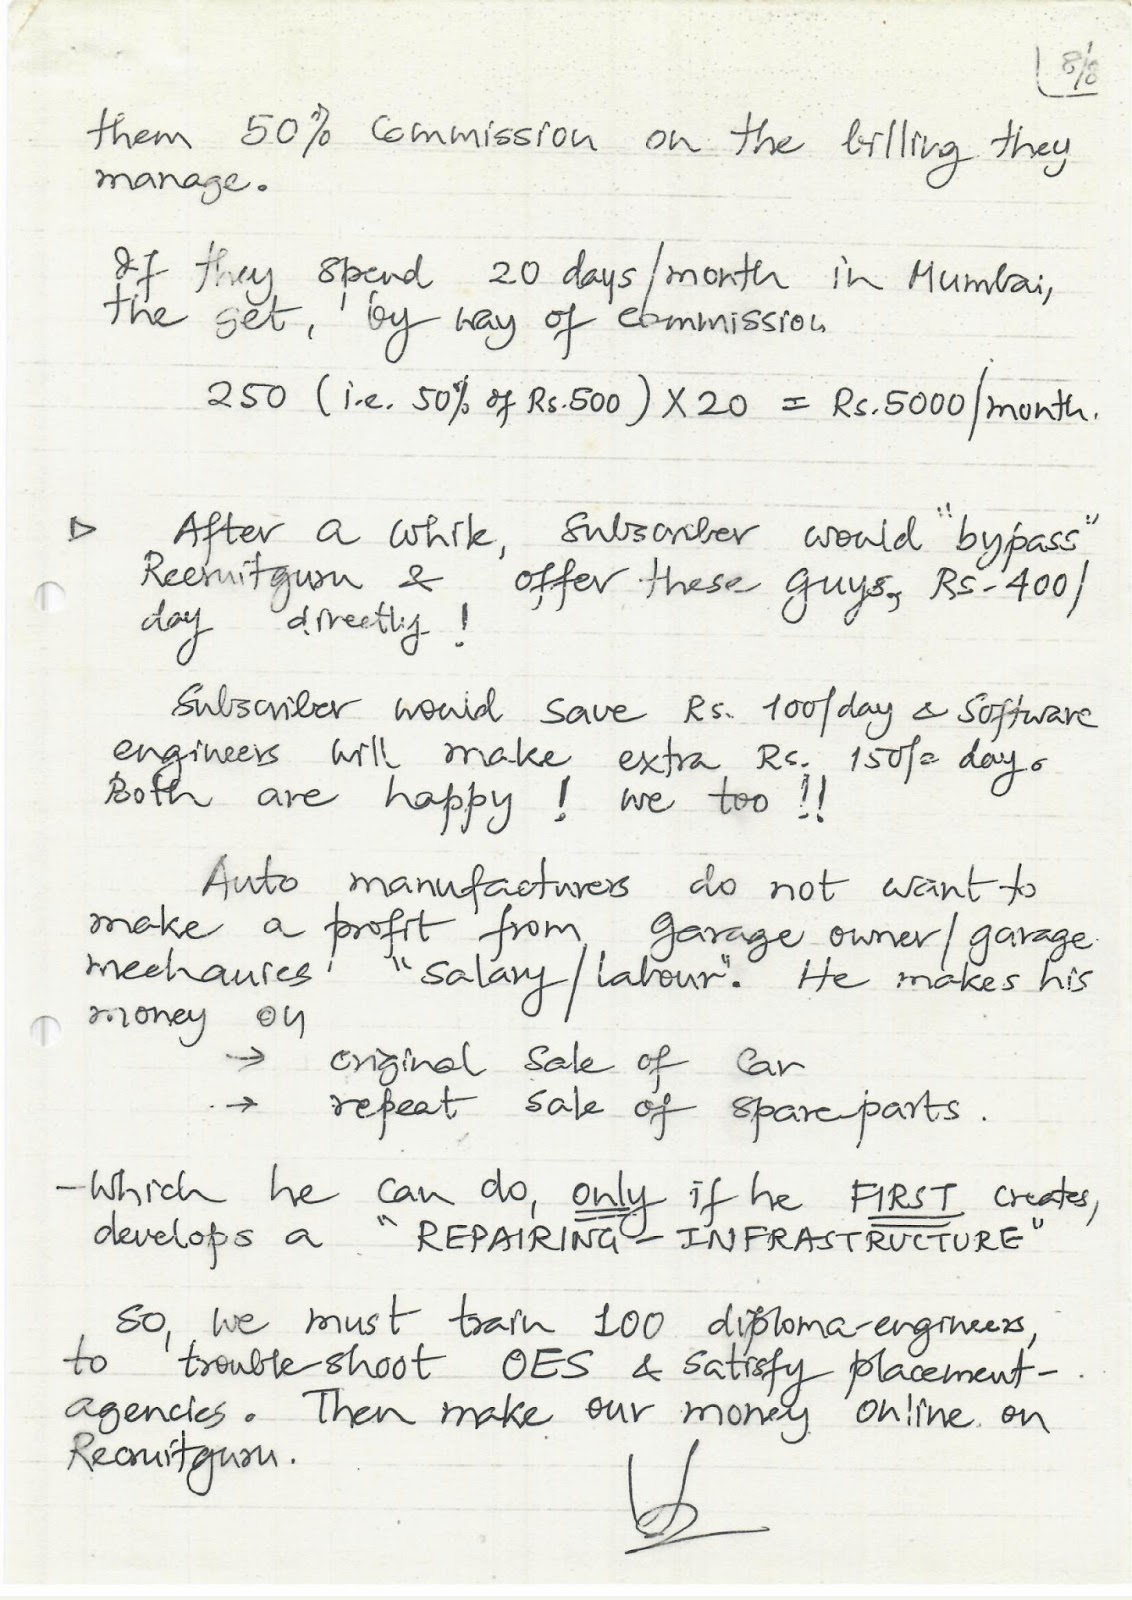 8/8
them 50% Commission on the billing they
manage.
If they spend 20 days/month in Mumbai,
the get, by way of commission
250 (i.e. 50% of Rs.500) X 20 = Rs.5000/month.
▷ After a while, subscriber would "bypass"
Recruitguru & offer these guys, Rs-400/
day directly!
Subscriber would save Rs. 100/day & Software
engineers will make extra Rs. 150/= day.
Both are happy! we too!!
Auto manufacturers do not want to
make a profit from garage owner/garage
mechanics' "salary/labour". He makes his
money on
→ original Sale of Car
→ repeat sale of spareparts.
- Which he can do, only if he FIRST creates,
develops a "REPAIRING-INFRASTRUCTURE"
So, we must train 100 diploma-engineers,
to trouble-shoot OES & satisfy placement-
agencies. Then make our money online on
Recruitguru.